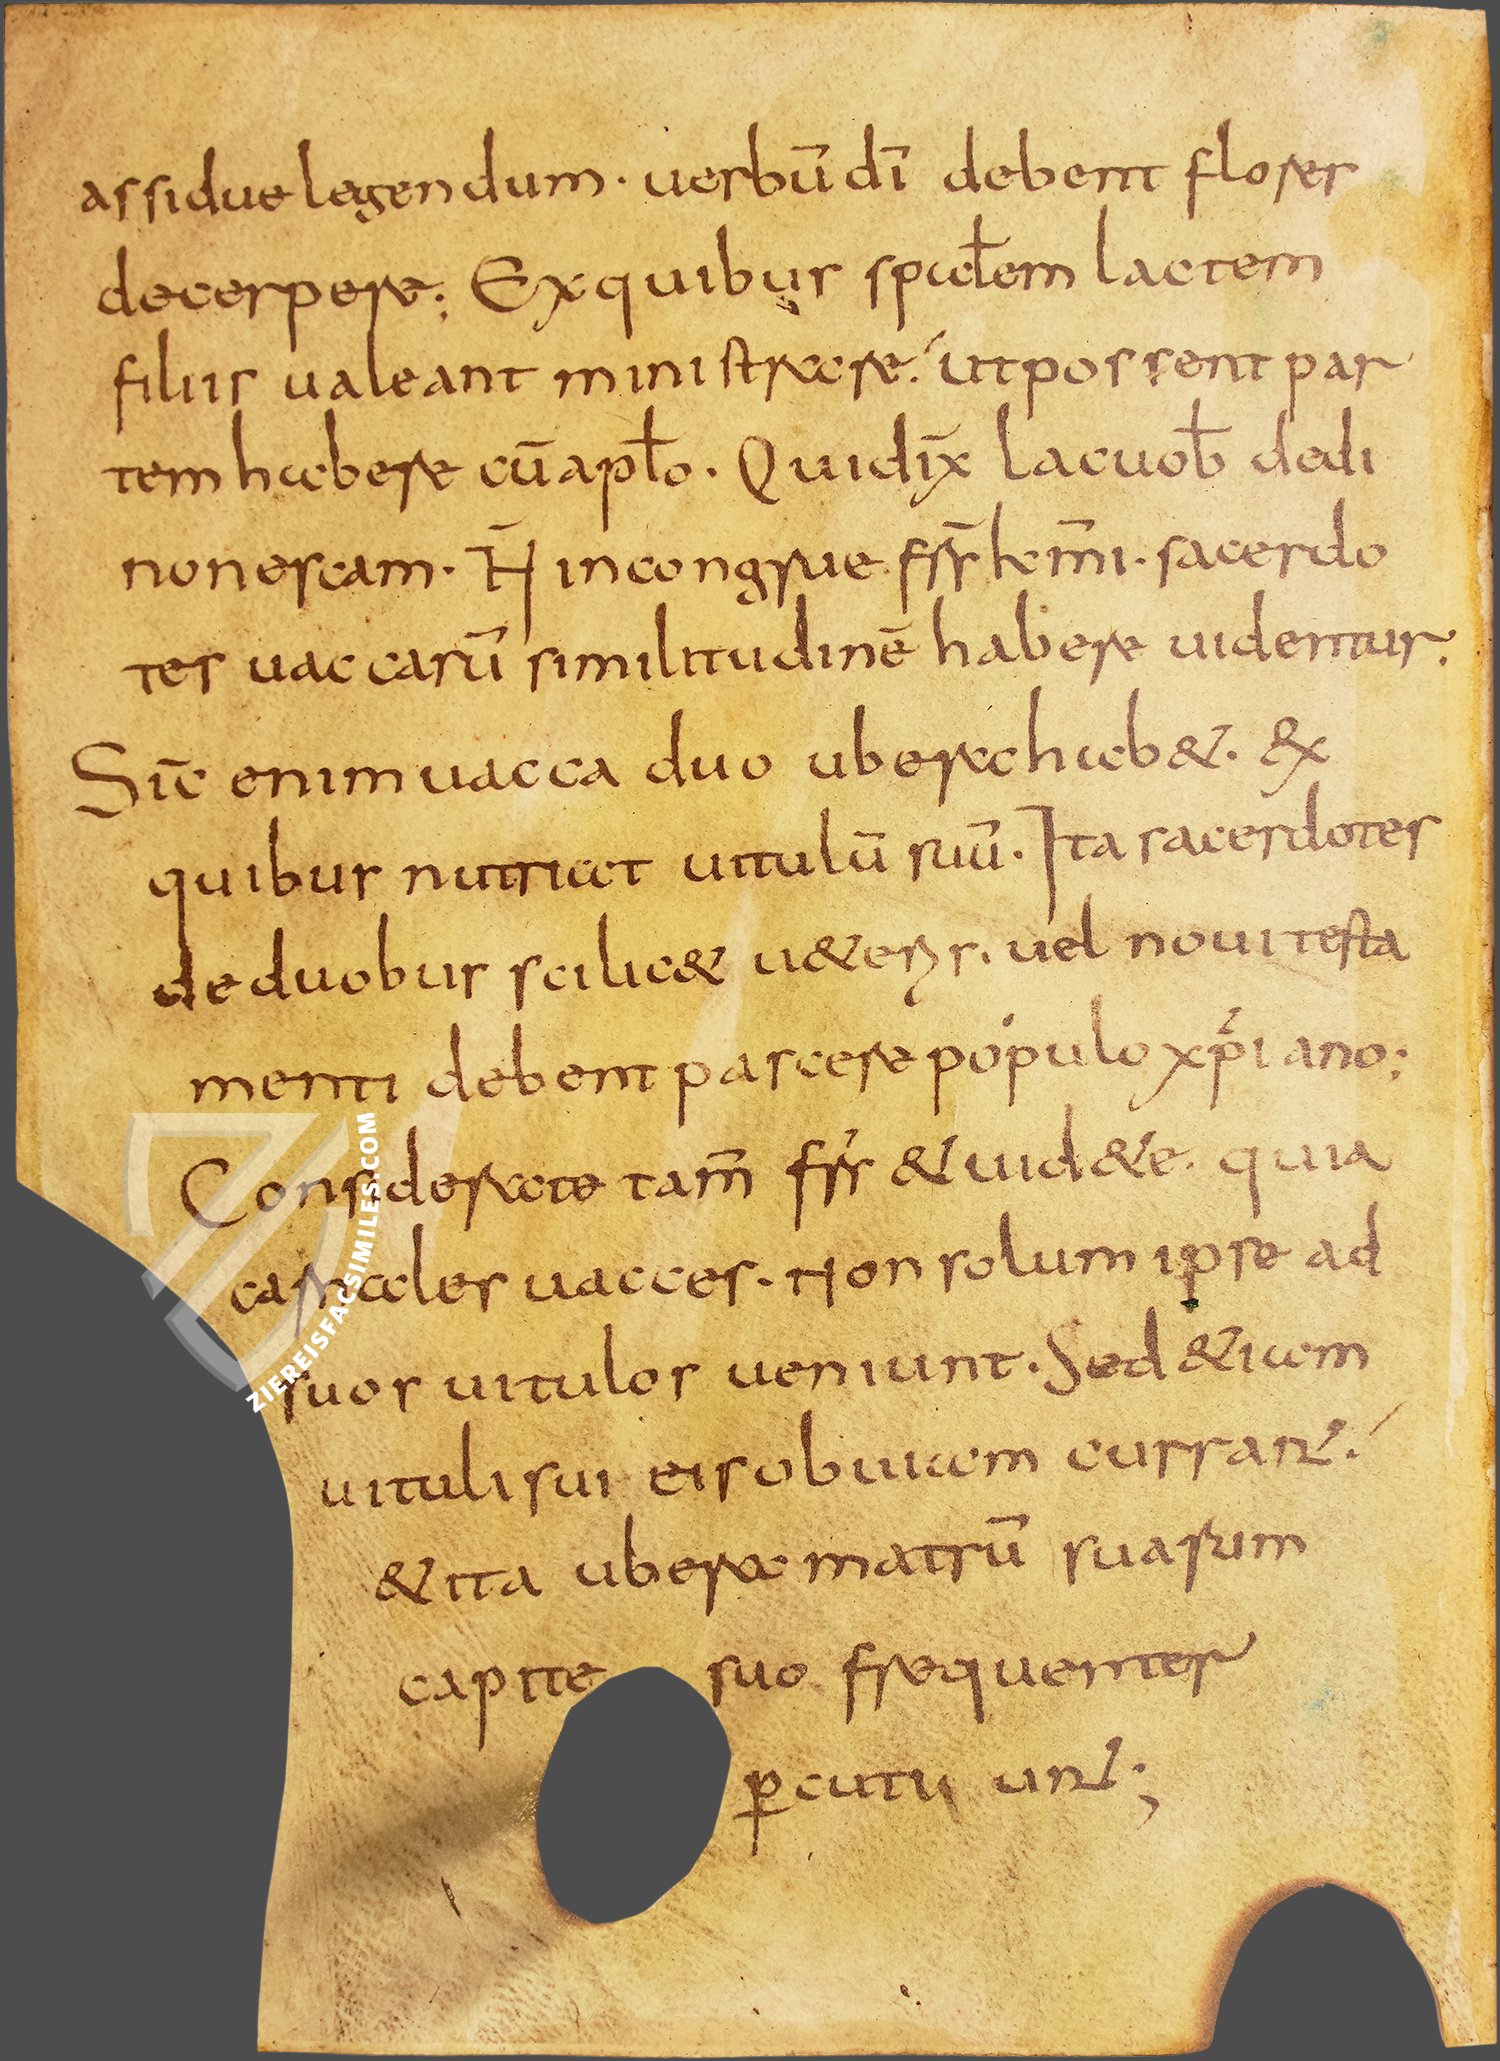 assidue legendum · uerbū dī debent flores
decerpere; Ex quibus spałem lactem
filiis ualeant ministrare. ut possent par
tem habere cū apło. Quid ix̄ lac uob̄ dedi
non escam. N̄ incongrue frr̄ km̄i. sacerdo
tes uaccarū similitudinē habere uidentur.
Sic̄ enim uacca duo ubera hab&. &x
quibus nutriat uitulū suū. Ita sacerdotes
de duobus scilic& u&eris. uel noui testa
menti debent pascere populo xp̄iano;
Considerate tam̄ frr̄ & uid&e. quia
carnales uacces. Non solum ipse ad
suos uitulos ueniunt. Sed &iam
uituli sui eis obuiam currant.
& ita ubera matrū suarum
capite suo frequenter
ꝑcutiunt;
ZIEREISFACSIMILES.COM